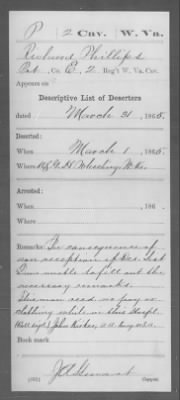 P 2 Cav. W. Va.
Richmond Phillips
Pvt, Co. E, 2 Reg't W. Va. Cav.
Appears on
Descriptive List of Deserters
dated March 31, 1865.
Deserted:
When March 1, 1865.
Where Wheeling W. Va.
Arrested:
When , 186 .
Where
Remarks: In consequence of
non reception of Des. List
I am unable to fill out the
necessary remarks.
This man rec'd no pay or
clothing while in this Hospl.
John Kirker, A.A. Surg. U.S.A.
Book mark
Copyist.